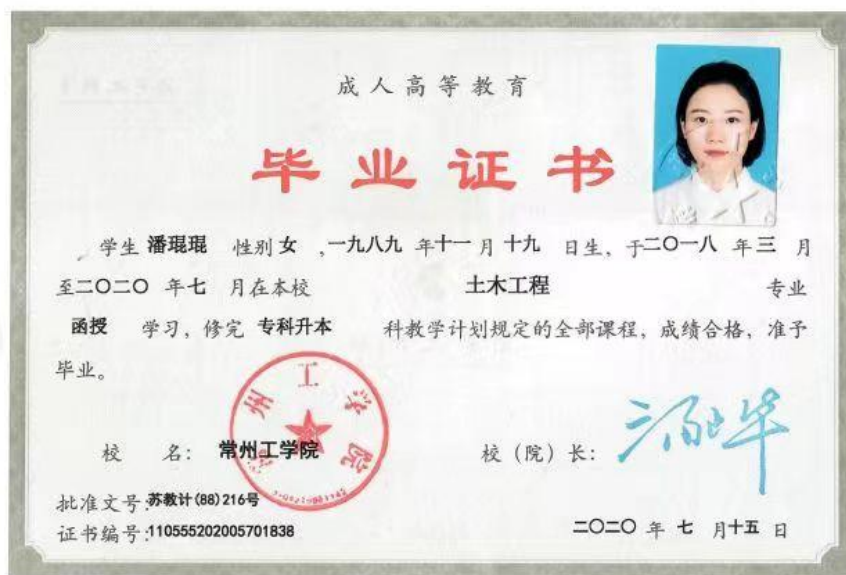 成人高等教育
毕业证书
学生 潘琨琨 性别 女 ,一九八九 年十一月 十九 日生，于二〇一八 年三 月
至二〇二〇 年七 月在本校 土木工程 专业
函授 学习，修完 专科升本 科教学计划规定的全部课程，成绩合格，准予
毕业。
常州工学院
校 名: 常州工学院 校（院）长:
批准文号:苏教计(88)216号
证书编号:110555202005701838 二〇二〇 年 七 月十五 日